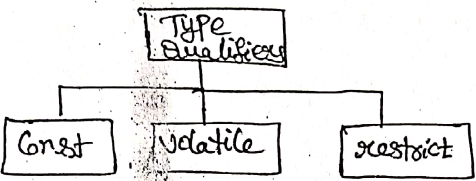 Type
Qualifiers
Const
Volatile
restrict